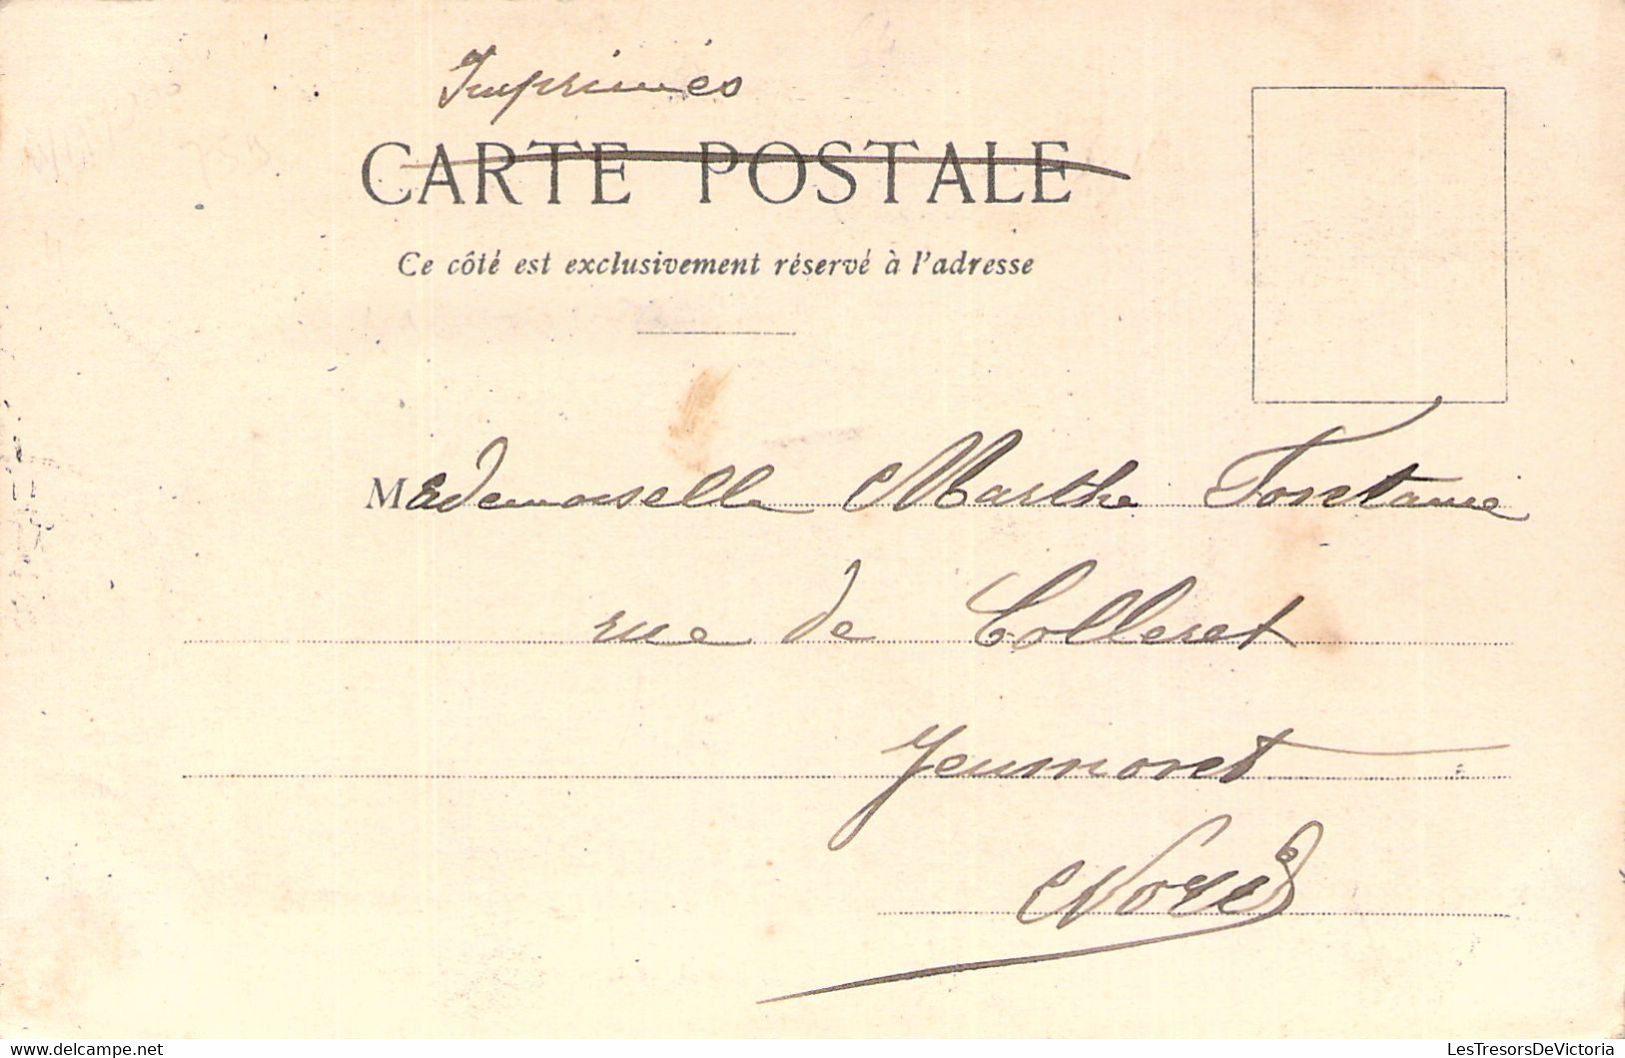 Imprimés
CARTE POSTALE
Ce côté est exclusivement réservé à l'adresse
Mademoiselle Marthe Fontaine
rue de Colleret
Jeumont
Nord
www.delcampe.net
LesTresorsDeVictoria